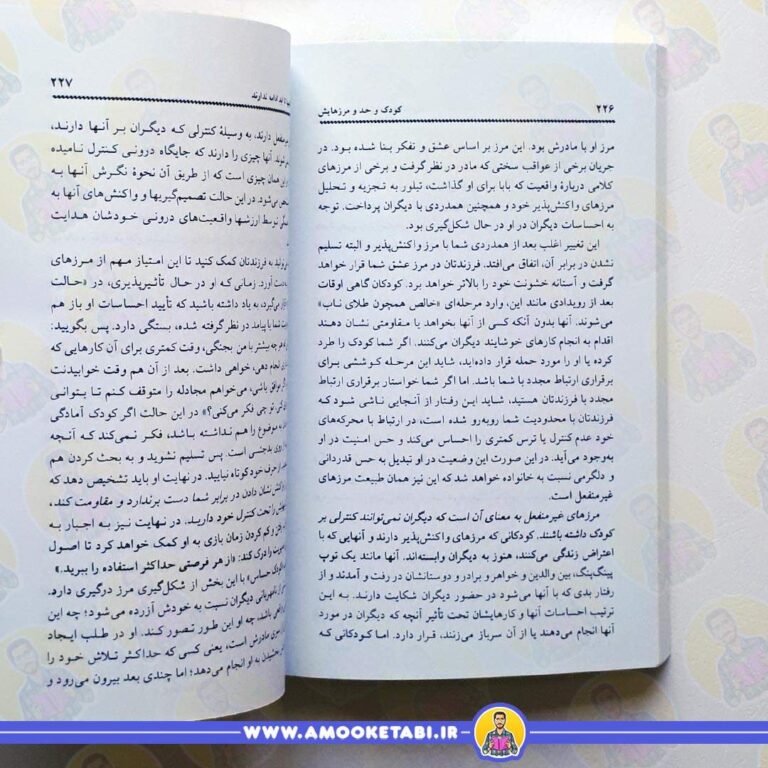 ۲۲۶
کودک و حد و مرزهایش
مرز او با مادرش بود. این مرز بر اساس عشق و تفکر بنا شده بود. در
جریان برخی از عواقب سختی که مادر در نظر گرفت و برخی از مرزهای
کلامی دربارهٔ واقعیت که بابا برای او گذاشت، تبلور به تجزیه و تحلیل
مرزهای واکنش‌پذیر خود و همچنین همدردی با دیگران پرداخت. توجه
به احساسات دیگران در او در حال شکل‌گیری بود.
این تغییر اغلب بعد از همدردی شما با مرز واکنش‌پذیر و البته تسلیم
نشدن در برابر آن، اتفاق می‌افتد. فرزندتان در مرز عشق شما قرار خواهد
گرفت و آستانه خشونت خود را بالاتر خواهد برد. کودکان گاهی اوقات
بعد از رویدادی مانند این، وارد مرحله‌ای «خالص همچون طلای ناب»
می‌شوند. آنها بدون آنکه کسی از آنها بخواهد یا مقاومتی نشان دهند
اقدام به انجام کارهای خوشایند دیگران می‌کنند. اگر شما کودک را طرد
کرده یا او را مورد حمله قرار داده‌اید، شاید این مرحله کوششی برای
برقراری ارتباط مجدد با شما باشد. اما اگر شما خواستار برقراری ارتباط
مجدد با فرزندتان هستید، شاید این رفتار از آنجایی ناشی شود که
فرزندتان با محدودیت شما روبه‌رو شده است، در ارتباط با محرکه‌های
خود عدم کنترل یا ترس کمتری را احساس می‌کند و حس امنیت در او
به‌وجود می‌آید. در این صورت این وضعیت در او تبدیل به حس قدردانی
و دلگرمی نسبت به خانواده خواهد شد که این نیز همان طبیعت مرزهای
غیرمنفعل است.
مرزهای غیرمنفعل به معنای آن است که دیگران نمی‌توانند کنترلی بر
کودک داشته باشند. کودکانی که مرزهای واکنش‌پذیر دارند و آنهایی که با
اعتراض زندگی می‌کنند، هنوز به دیگران وابسته‌اند. آنها مانند یک توپ
پینگ‌پنگ، بین والدین و خواهر و برادر و دوستانشان در رفت و آمدند و از
رفتار بدی که با آنها می‌شود در حضور دیگران شکایت دارند. به این
ترتیب احساسات آنها و کارهایشان تحت تأثیر آنچه که دیگران در مورد
آنها انجام می‌دهند یا از آن سرباز می‌زنند، قرار دارد. اما کودکانی که
۲۲۷
ادامه ندارند
دارند، به وسیلهٔ کنترلی که دیگران بر آنها دارند،
آنها چیزی را دارند که جایگاه درونی کنترل نامیده
همان چیزی است که از طریق آن نحوهٔ نگرش آنها به
می‌شود. در این حالت تصمیم‌گیریها و واکنش‌های آنها به
توسط ارزشها واقعیت‌های درونی خودشان هدایت
به فرزندتان کمک کنید تا این امتیاز مهم از مرزهای
آورد. زمانی که او در حال تأثیرپذیری، در «حالت
به یاد داشته باشید که تأیید احساسات او باز هم
شما با پیامد در نظر گرفته شده، بستگی دارد. پس بگویید:
هر چه بیشتر با من بجنگی، وقت کمتری برای آن کارهایی که
انجام دهی، خواهی داشت. بعد از آن هم وقت خوابیدنت
موافق باشی، می‌خواهم مجادله را متوقف کنم تا بتوانی
تو چی فکر می‌کنی؟» در این حالت اگر کودک آمادگی
موضوع را هم نداشته باشد، فکر نمی‌کند که آنچه
از روی بدجنسی است. پس تسلیم نشوید و به بحث کردن هم
از حرف خود کوتاه نیایید. در نهایت او باید تشخیص دهد که
نشان دادن در برابر شما دست برندارد و مقاومت کند،
را تحت کنترل خود دارید. در نهایت نیز به اجبار به
و کم کردن زمان بازی به او کمک خواهد کرد تا اصول
را درک کند: «از هر فرصتی حداکثر استفاده را ببرید.»
کودک حساس» با این بخش از شکل‌گیری مرز درگیری دارد.
نامهربانی دیگران نسبت به خودش آزرده می‌شود؛ چه این
باشد، چه او این طور تصور کند. او در طلب ایجاد
مادرش است، یعنی کسی که حداکثر تلاش خود را
بخشیدن به او انجام می‌دهد؛ اما چندی بعد بیرون می‌رود و
WWW.AMOOKETABI.IR